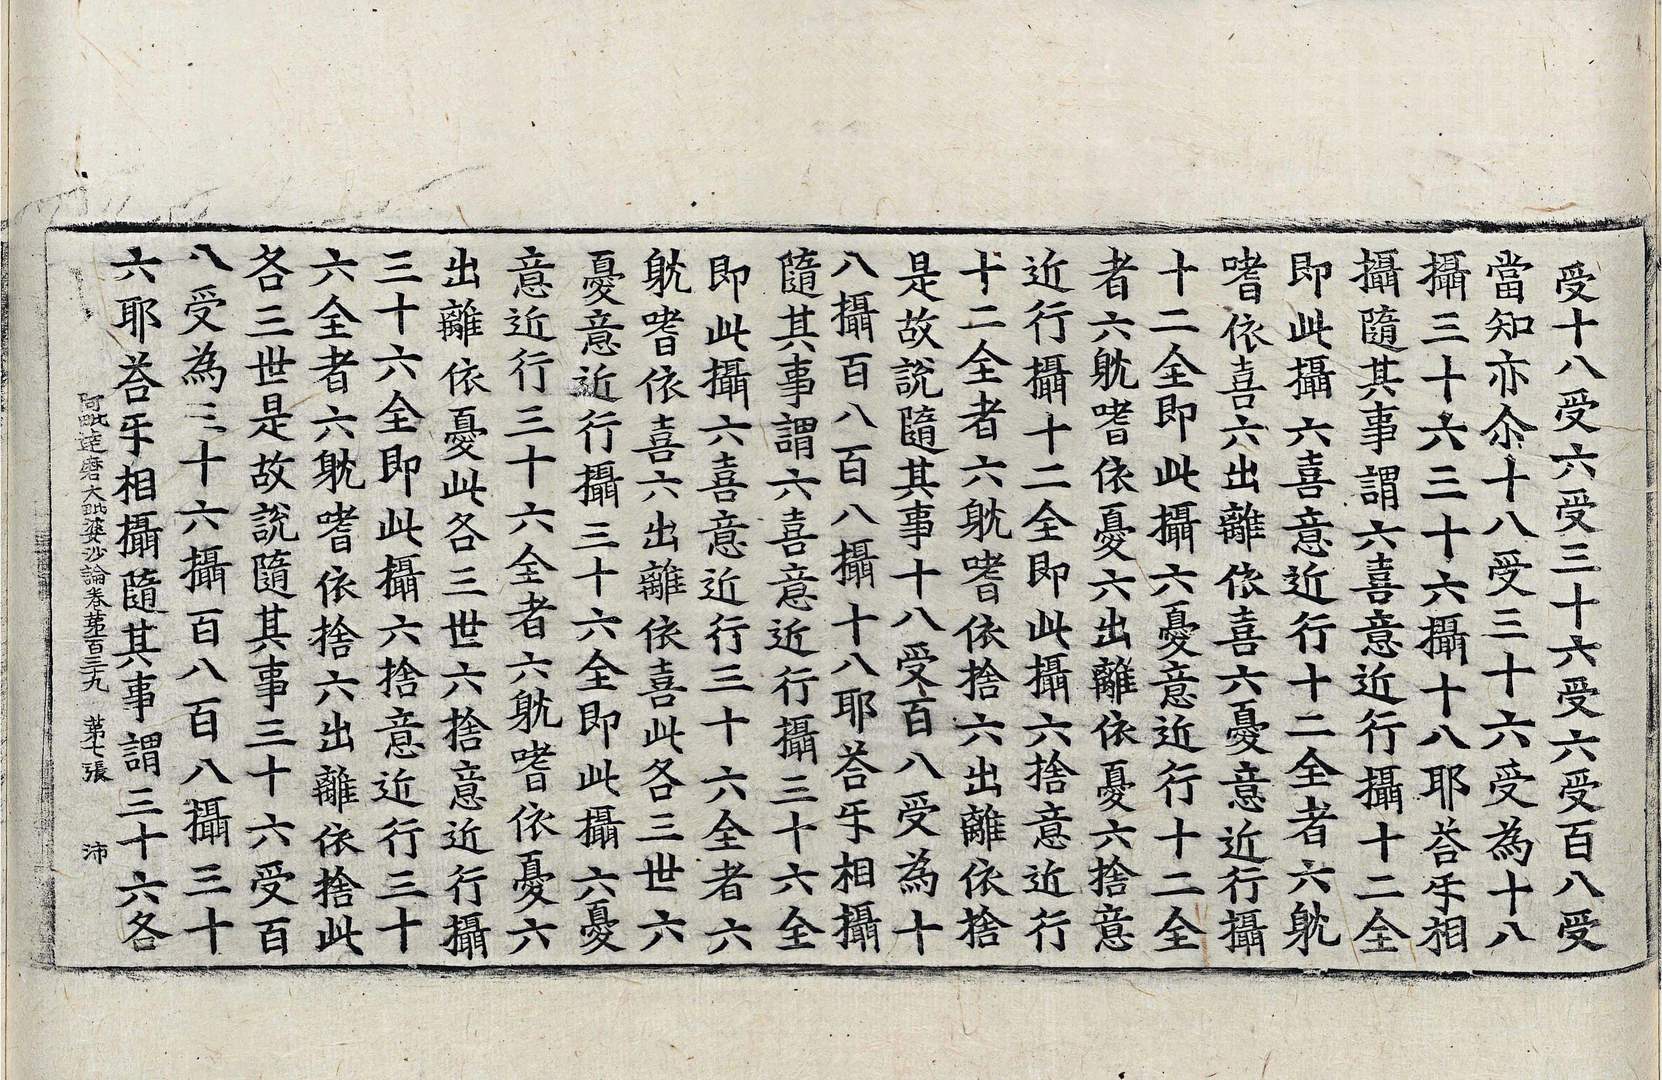 受十八受六受三十六受六受百八受
當知亦尒十八受三十六受為十八
攝三十六三十六攝十八耶荅乎相
攝隨其事謂六喜意近行攝十二全
即此攝六喜意近行十二全者六躭
嗜依喜六出離依喜六憂意近行攝
十二全即此攝六憂意近行十二全
者六躭嗜依憂六出離依憂六捨意
近行攝十二全即此攝六捨意近行
十二全者六躭嗜依捨六出離依捨
是故說隨其事十八受百八受為十
八攝百八百八攝十八耶荅乎相攝
隨其事謂六喜意近行攝三十六全
即此攝六喜意近行三十六全者六
躭嗜依喜六出離依喜此各三世六
憂意近行攝三十六全即此攝六憂
意近行三十六全者六躭嗜依憂六
出離依憂此各三世六捨意近行攝
三十六全即此攝六捨意近行三十
六全者六躭嗜依捨六出離依捨此
各三世是故說隨其事三十六受百
八受為三十六攝百八百八攝三十
六耶荅乎相攝隨其事謂三十六各
阿毗達磨大毗婆沙論卷苐百三十九 苐七張 沛